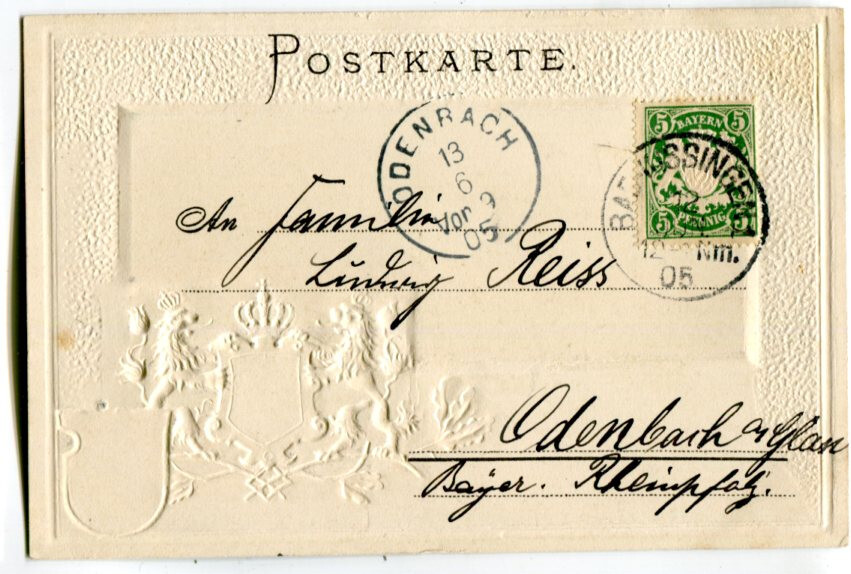 POSTKARTE.
ODENBACH
13
6
Vor 9
05
5 BAYERN 5
5 PFENNIG 5
BAD KISSINGEN
12
12 Nm.
05
An Familie
Ludwig Reiss
Odenbach a/Glan
Bayer. Rheinpfalz.